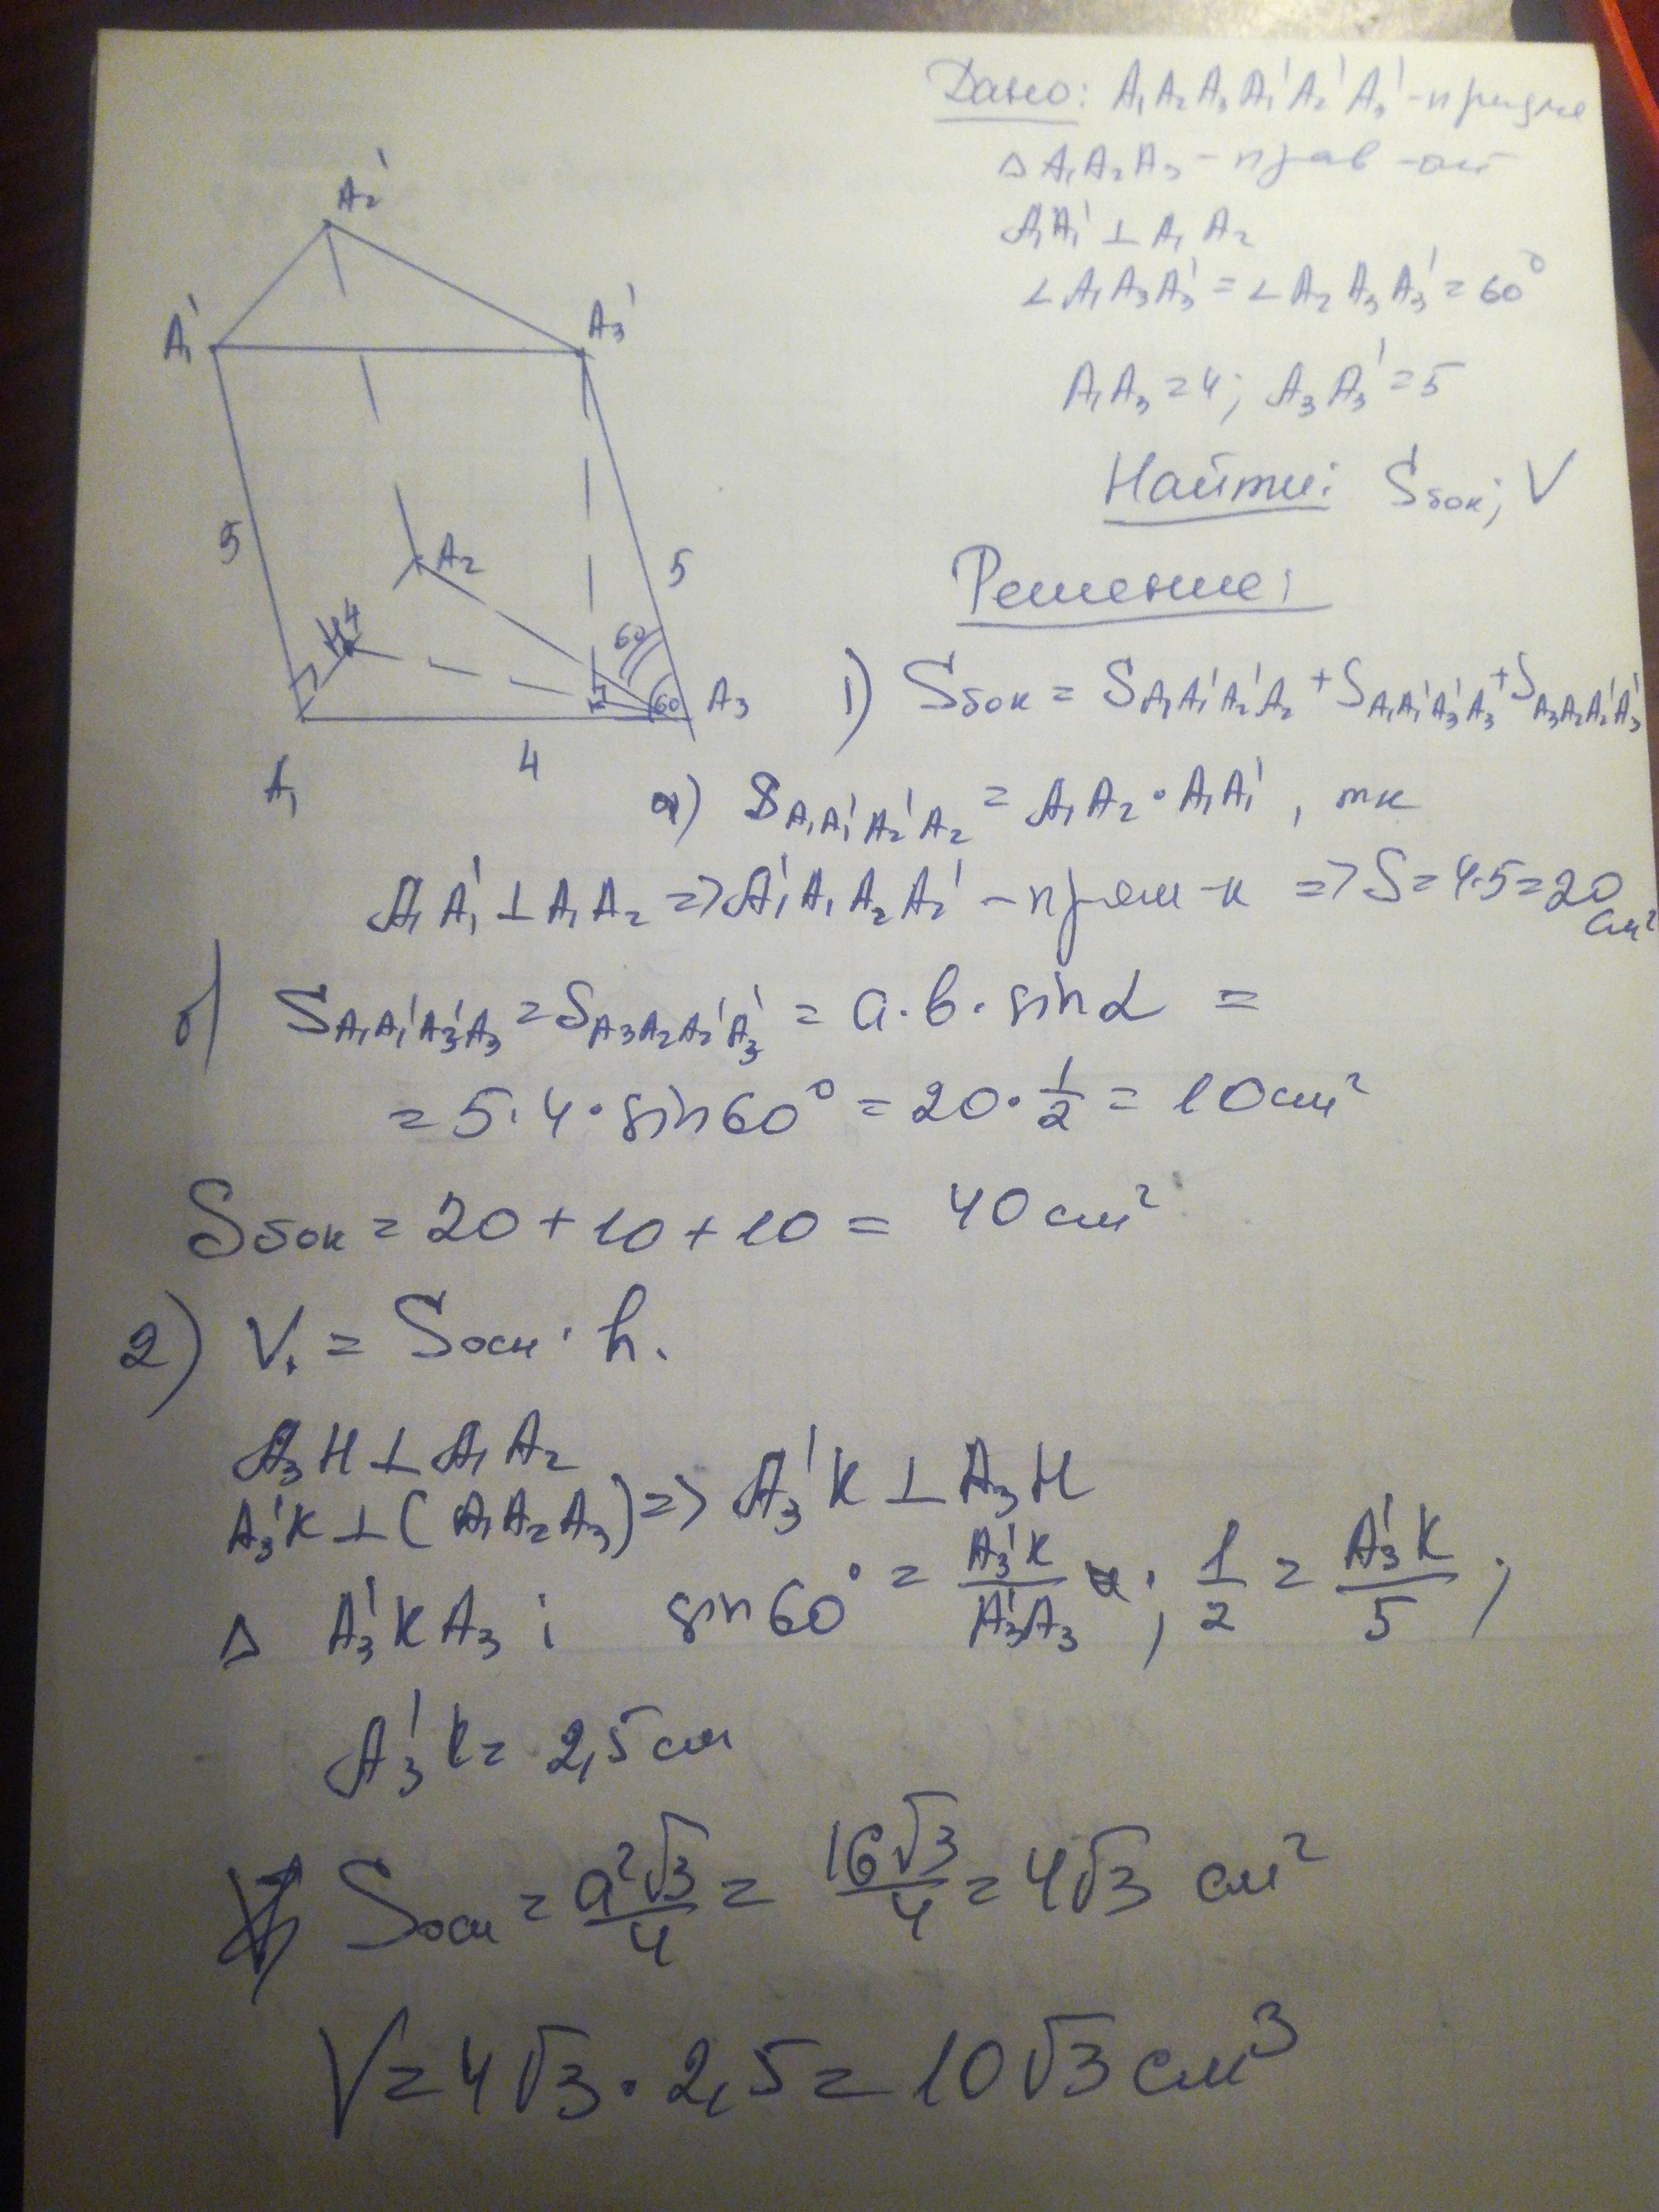 Дано: A₁A₂A₃A₁'A₂'A₃' - призма
△A₁A₂A₃ - прав-ый
A₁A₁' ⊥ A₁A₂
∠A₁A₃A₃' = ∠A₂A₃A₃' = 60°
A₁A₃ = 4; A₃A₃' = 5
Найти: Sбок; V
Решение:
A₂'
A₁'
A₃'
5
A₂
5
H
4
60
60
K
A₃
4
A₁
1) Sбок = S A₁A₁'A₂'A₂ + S A₁A₁'A₃'A₃ + S A₃A₂A₂'A₃'
а) S A₁A₁'A₂'A₂ = A₁A₂ · A₁A₁', тк
A₁A₁' ⊥ A₁A₂ => A₁'A₁A₂A₂' - прям-к => S = 4·5 = 20 см²
б) S A₁A₁'A₃'A₃ = S A₃A₂A₂'A₃' = a · b · sin α =
= 5 · 4 · sin 60° = 20 · 1/2 = 10 см²
Sбок = 20 + 10 + 10 = 40 см²
2) V = Sосн · h.
A₃H ⊥ A₁A₂
A₃'K ⊥ (A₁A₂A₃) => A₃'K ⊥ A₃H
△ A₃'KA₃: sin 60° = A₃'K/A₃'A₃; 1/2 = A₃'K/5;
A₃'K = 2,5 см
Sосн = a²√3/4 = 16√3/4 = 4√3 см²
V = 4√3 · 2,5 = 10√3 см³